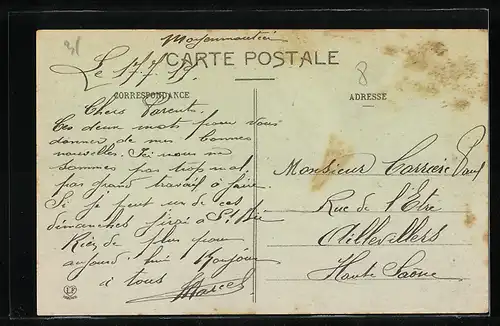 Moyenmoutier
CARTE POSTALE
Le 17/7 19.
CORRESPONDANCE
ADRESSE
8
Chers Parents.
Ces deux mots pour vous
donner de mes bonnes
nouvelles. Ici nous ne
sommes pas trop mal,
pas grand travail à faire.
Si je peut un de ces
dimanches j'irai à St Dié
Rien de plus pour
aujourd'hui Bonjour
à tous
Marcel
Monsieur Carrare Paul
Rue de l'Etre
Aillevillers
Haute Saône